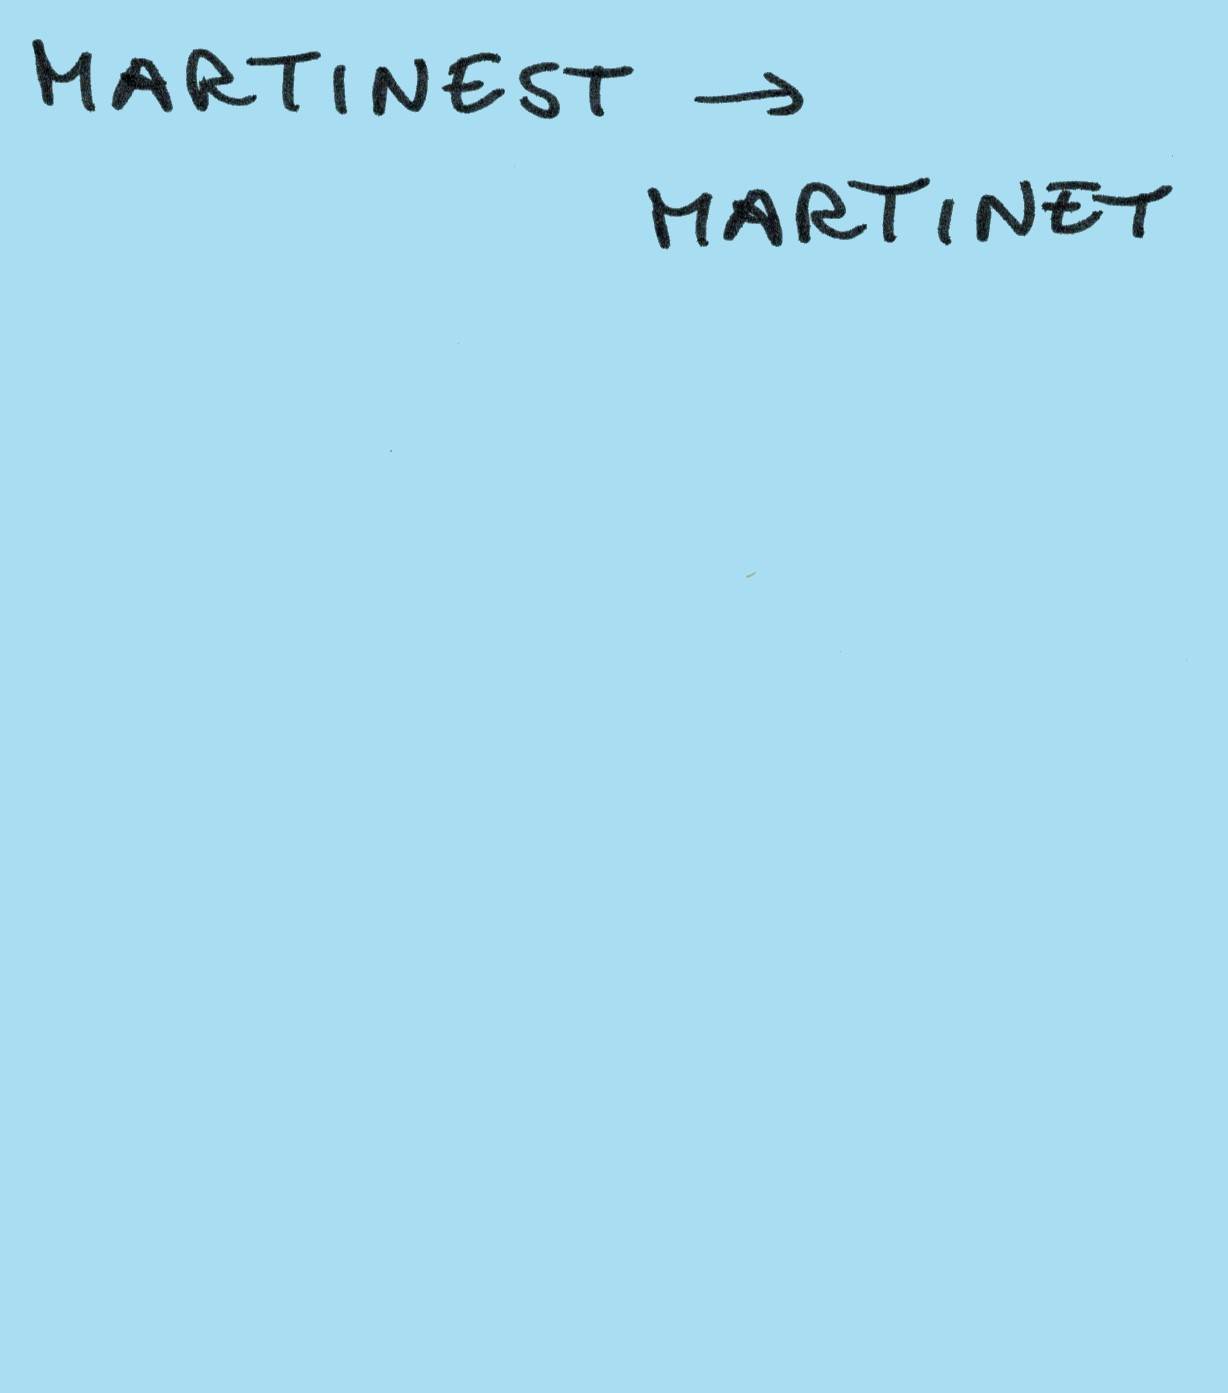 MARTINEST →
MARTINET